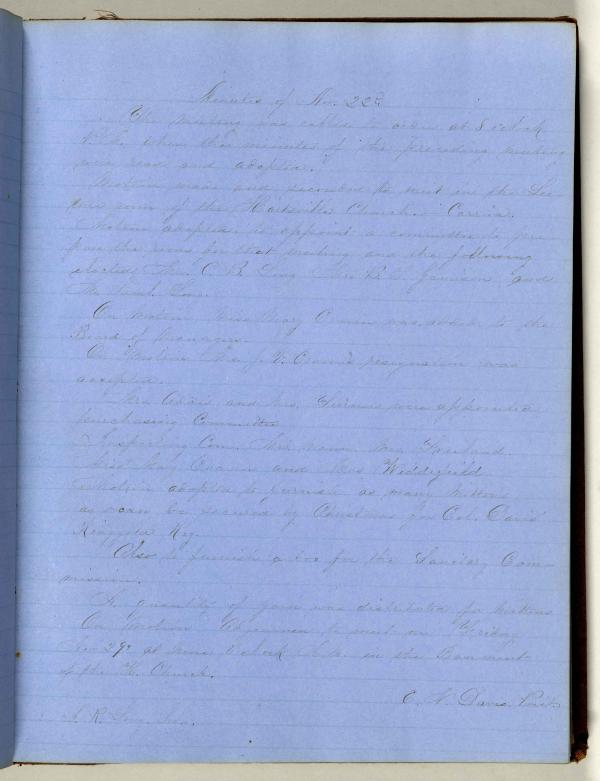 Minutes of Nov. 22d
The meeting was called to order at 8 o'clock
P.M. when the minutes of the preceding meeting
were read and adopted.
Motion made and seconded to meet in the Lec-
ture room of the Hartsville Church. Carried.
Motion adopted to appoint a committee to pre-
pare the room for that meeting and the following
elected, Mrs. C. R. Long Mrs. R. Jamison and
On motion Miss Mary Craven was added to the
Board of Managers.
On motion Mrs. J. V. Craven's resignation was
accepted.
Mrs. Adair and Mrs. were appointed
purchasing Committee
Inspecting Com. Mrs.
Miss May Craven and Mrs. Weddigfield
Motion adopted to furnish as many mittens
as can be secured by Christmas for Col. Davis'
Ringgold Reg.
Also to furnish a box for the Sanitary Com-
mission.
A quantity of yarn was distributed for mittens
On motion adjourned to meet on Friday
Nov 29th at o'clock in the Basement
of the H. Church.
C. H. Davis Pres't.
R. Long Sec.